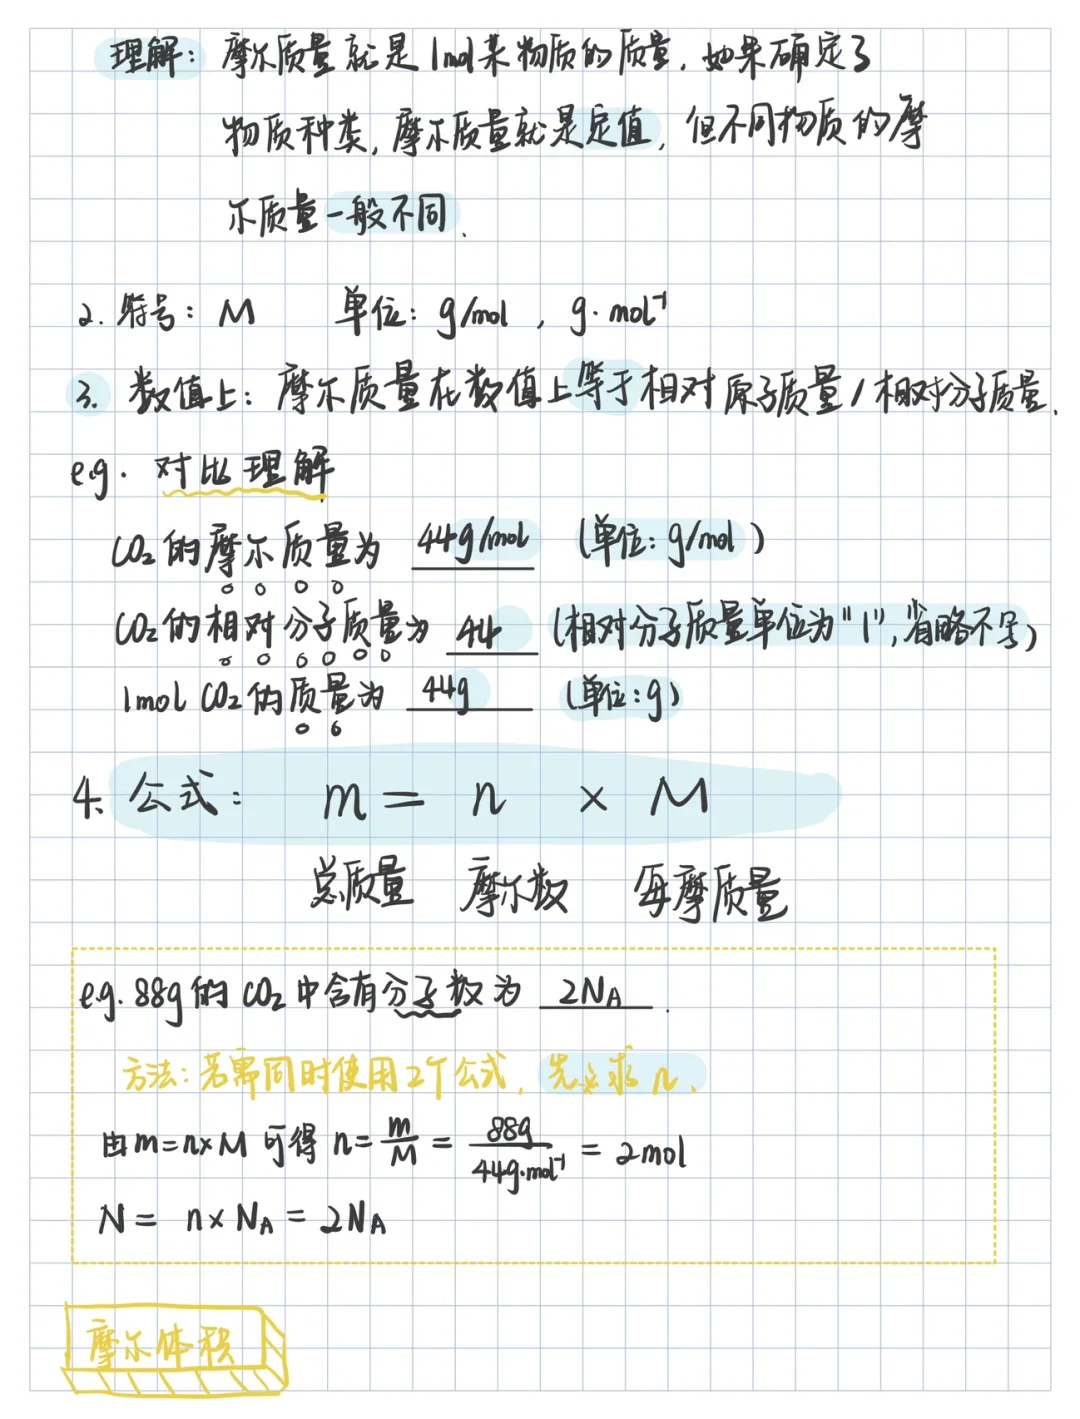 理解: 摩尔质量就是1mol某物质的质量, 如果确定了
物质种类, 摩尔质量就是定值, 但不同物质的摩
尔质量一般不同.
2. 符号: M 单位: g/mol , g·mol⁻¹
3. 数值上: 摩尔质量在数值上等于相对原子质量/相对分子质量.
e.g. 对比理解
CO₂的摩尔质量为 44g/mol (单位: g/mol)
CO₂的相对分子质量为 44 (相对分子质量单位为"1", 省略不写)
1mol CO₂的质量为 44g (单位: g)
4. 公式: m = n × M
总质量 摩尔数 每摩质量
e.g. 88g的CO₂中含有分子数为 2Nᴀ .
方法: 若需同时使用2个公式, 先求n.
由m=n×M可得 n= m/M = 88g/44g·mol⁻¹ = 2mol
N = n×Nᴀ = 2Nᴀ
摩尔体积